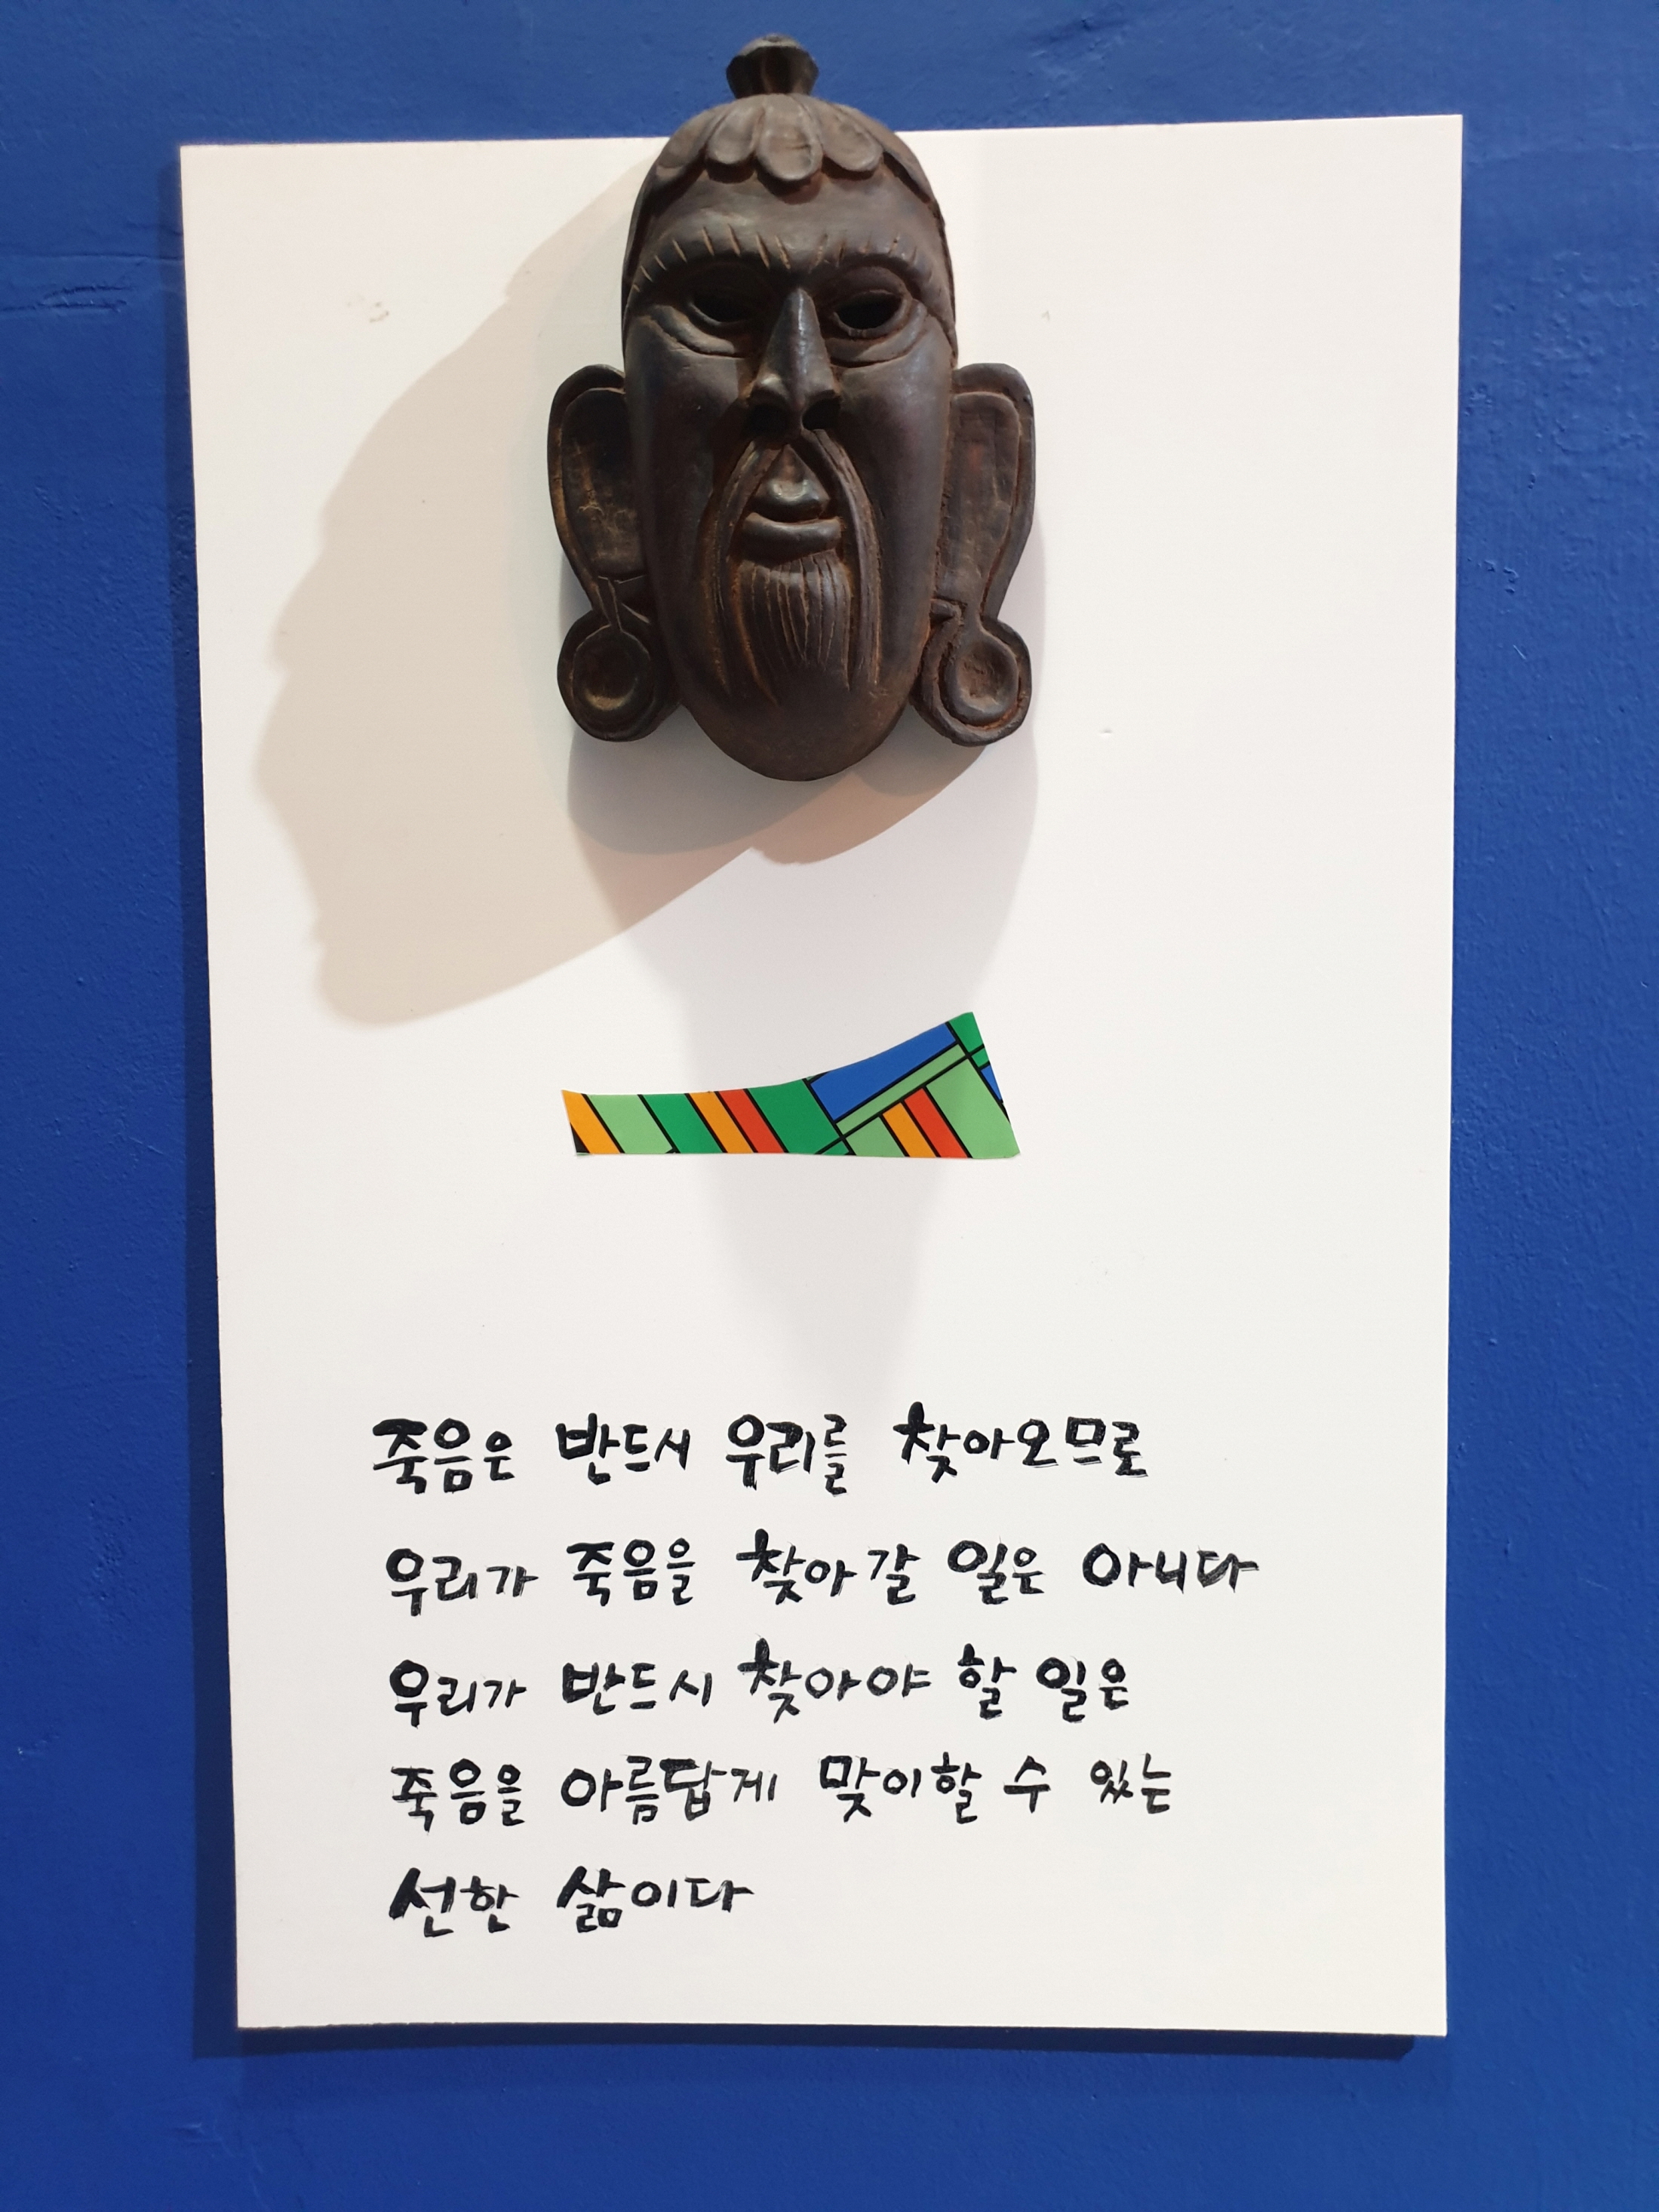 죽음은 반드시 우리를 찾아오므로
우리가 죽음을 찾아갈 일은 아니다
우리가 반드시 찾아야 할 일은
죽음을 아름답게 맞이할 수 있는
선한 삶이다